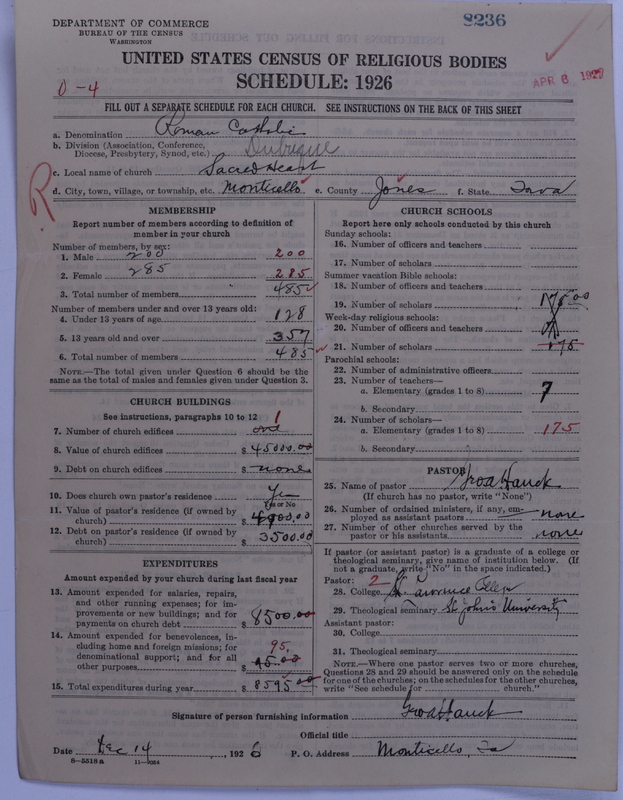 DEPARTMENT OF COMMERCE
BUREAU OF THE CENSUS
WASHINGTON
8236
UNITED STATES CENSUS OF RELIGIOUS BODIES
SCHEDULE: 1926
0-4
APR 8 1927
FILL OUT A SEPARATE SCHEDULE FOR EACH CHURCH. SEE INSTRUCTIONS ON THE BACK OF THIS SHEET
a. Denomination Roman Catholic
b. Division (Association, Conference, Diocese, Presbytery, Synod, etc.) Dubuque
c. Local name of church Sacred Heart
d. City, town, village, or township, etc. Monticello e. County Jones f. State Iowa
R
MEMBERSHIP
Report number of members according to definition of
member in your church
Number of members, by sex:
1. Male 200 200
2. Female 285 285
3. Total number of members 485
Number of members under and over 13 years old:
4. Under 13 years of age 128
5. 13 years old and over 357
6. Total number of members 485
NOTE.—The total given under Question 6 should be
same as the total of males and females given under Question 3.
CHURCH BUILDINGS
See instructions, paragraphs 10 to 12
7. Number of church edifices one 1
8. Value of church edifices $ 45000.00
9. Debt on church edifices $ none
10. Does church own pastor's residence Yes
Yes or No
11. Value of pastor's residence (if owned by
church) $ 000.00
12. Debt on pastor's residence (if owned by
church) $ 3500.00
EXPENDITURES
Amount expended by your church during last fiscal year
13. Amount expended for salaries, repairs,
and other running expenses; for im-
provements or new buildings; and for
payments on church debt $ 8500.00
14. Amount expended for benevolences, in-
cluding home and foreign missions; for
denominational support; and for all
other purposes $ 95.
15. Total expenditures during year $ 8595.00
CHURCH SCHOOLS
Report here only schools conducted by this church
Sunday schools:
16. Number of officers and teachers
17. Number of scholars
Summer vacation Bible schools:
18. Number of officers and teachers
19. Number of scholars
Week-day religious schools:
20. Number of officers and teachers
21. Number of scholars 175
Parochial schools:
22. Number of administrative officers
23. Number of teachers—
a. Elementary (grades 1 to 8) 7
b. Secondary
24. Number of scholars—
a. Elementary (grades 1 to 8) 175
b. Secondary
PASTOR
25. Name of pastor Hauck
(If church has no pastor, write "None")
26. Number of ordained ministers, if any, em-
ployed as assistant pastors none
27. Number of other churches served by the
pastor or his assistants none
If pastor (or assistant pastor) is a graduate of a college or
theological seminary, give name of institution below. (If
not a graduate, write "No" in the space indicated.)
Pastor: 2
28. College St Lawrence College
29. Theological seminary St John's University
Assistant pastor:
30. College
31. Theological seminary
NOTE.—Where one pastor serves two or more churches,
Questions 28 and 29 should be answered only on the schedule
for one of the churches; on the schedules for the other churches,
write "See schedule for church."
Signature of person furnishing information Hauck
Official title
Date Dec 14, 1926 P. O. Address Monticello, Ia
8—5518a 11—9264